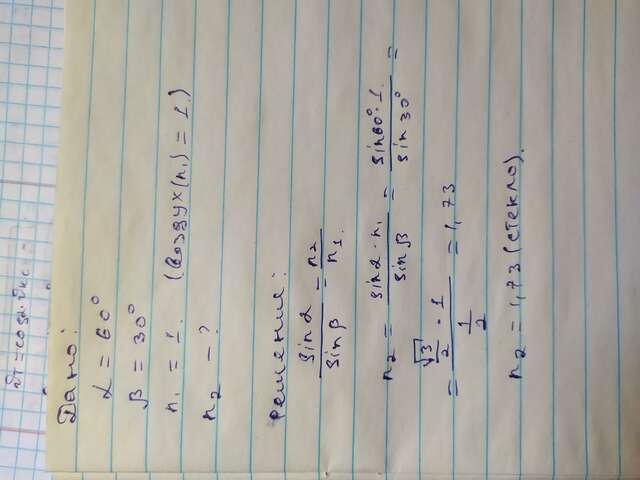 Дано:
α = 60°
β = 30°
n₁ = 1. (воздух (n₁) = 1.)
n₂ - ?
Решения:
sinα / sinβ = n₂ / n₁.
n₂ = sinα · n₁ / sinβ = sin60° · 1. / sin30° =
= √3/2 · 1 / 1/2 = 1,73
n₂ = 1,73 (стекло).